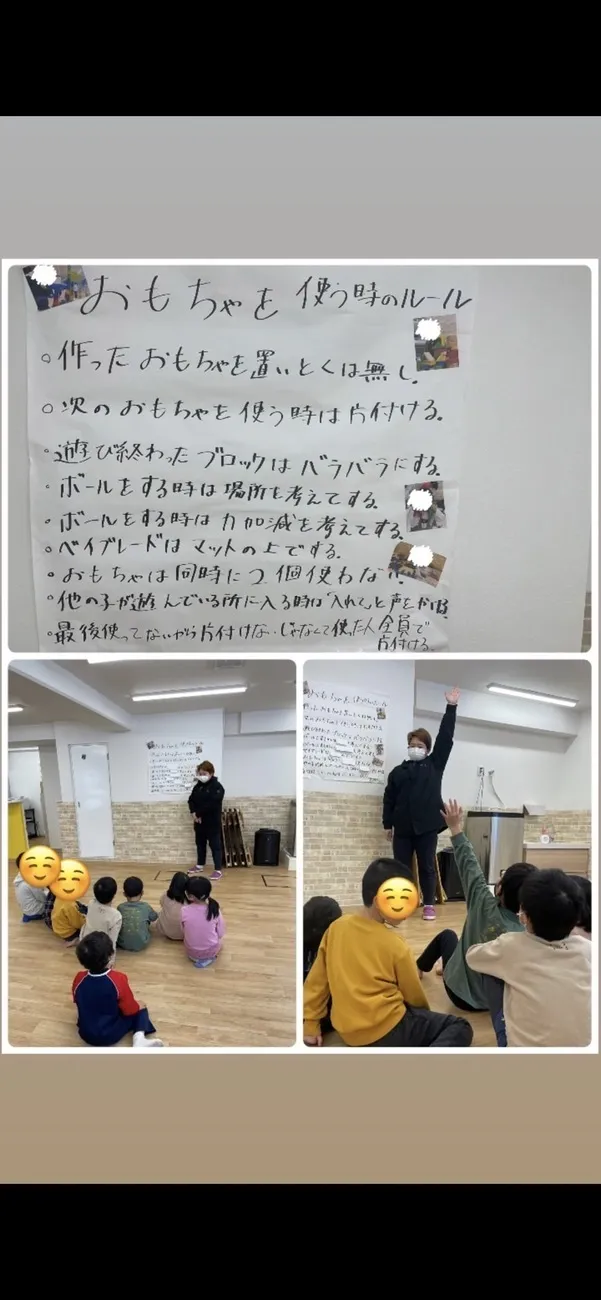 おもちゃを 使う時のルール
○作ったおもちゃを置いとくは無し。
○次のおもちゃを使う時は片付ける。
○遊び終わったブロックはバラバラにする。
○ボールをする時は場所を考えてする。
○ボールをする時は力加減を考えてする。
○ベイブレードはマットの上でする。
○おもちゃは同時に2個使わない。
○他の子が遊んでいる所に入る時は「入れて」と声をかける。
○最後使ってないから片付けない.じゃなくて使った人全員で
片付ける。